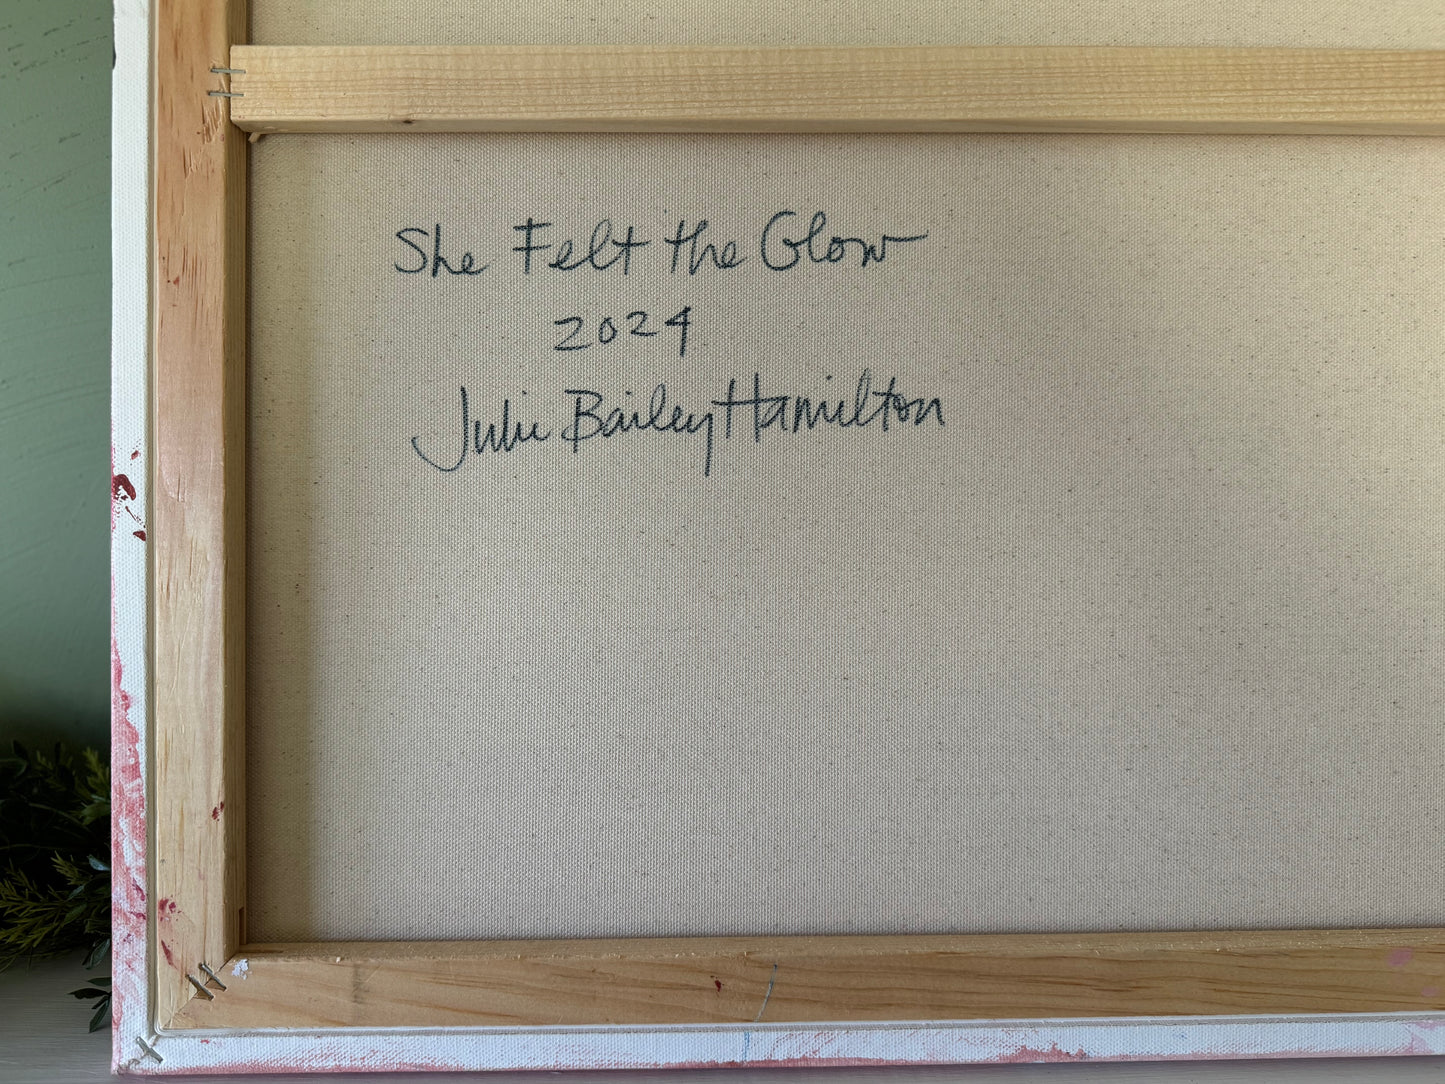 She Felt the Glow
2024
Julie Bailey Hamilton